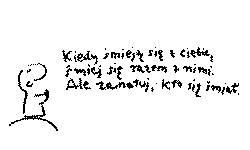 Kiedy śmieją się z ciebie,
śmiej się razem z nimi.
Ale zanotuj, kto się śmiał.